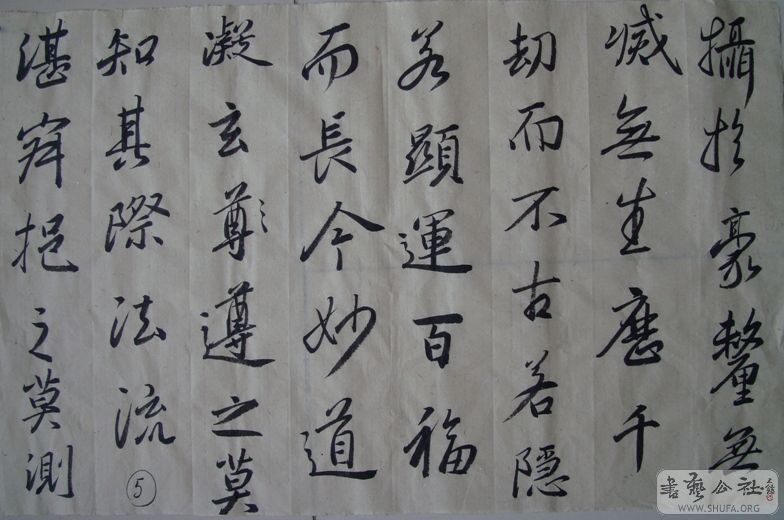 攝於豪釐無
滅無生歷千
劫而不古若隱
若顯運百福
而長今妙道
凝玄尊遵之莫
知其際法流
湛寂挹之莫測
⑤
書藝公社
WWW.SHUFA.ORG